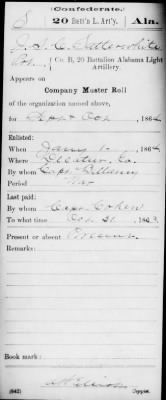 S | Confederate. | Ala.
20 Batt'n L. Art'y.
Co. B, 20 Battalion Alabama Light
Artillery.
Appears on
Company Muster Roll
of the organization named above,
for Sept & Oct, 1864
Enlisted:
When Jany 1
Where Decatur, Ga.
By whom Capt
Period War
Last paid:
By whom Capt Cohen
To what time Oct 31, 1863.
Present or absent Present
Remarks:
Book mark:
(642) Copyist.